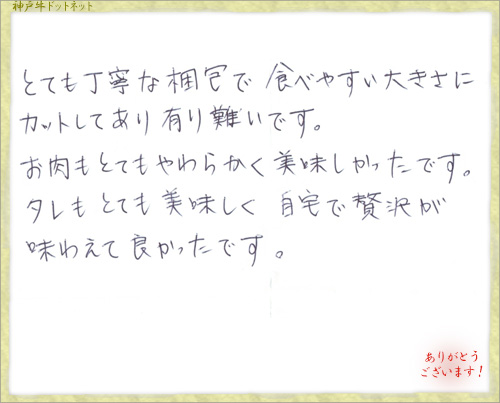 神戸牛ドットネット
とても丁寧な梱包で 食べやすい大きさに
カットしてあり 有り難いです。
お肉もとてもやわらかく美味しかったです。
タレもとても美味しく 自宅で贅沢が
味わえて良かったです。
ありがとう
ございます!